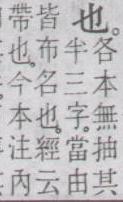 也。各本無抽其
半三字。當由
皆布名也。經云
帶也。今本注內